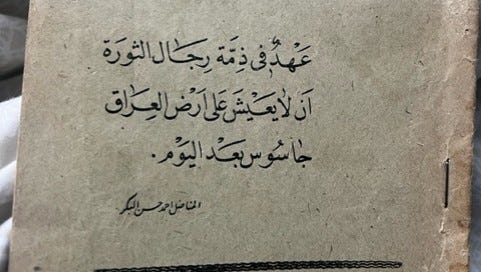 عَهْدٌ في ذِمّة رِجَال الثورَة
اَن لا يَعيْشَ عَلى اَرْضِ العِرَاق
جَاسُوس بَعْد اليَوْم.
المناضل احمد حسن البكر